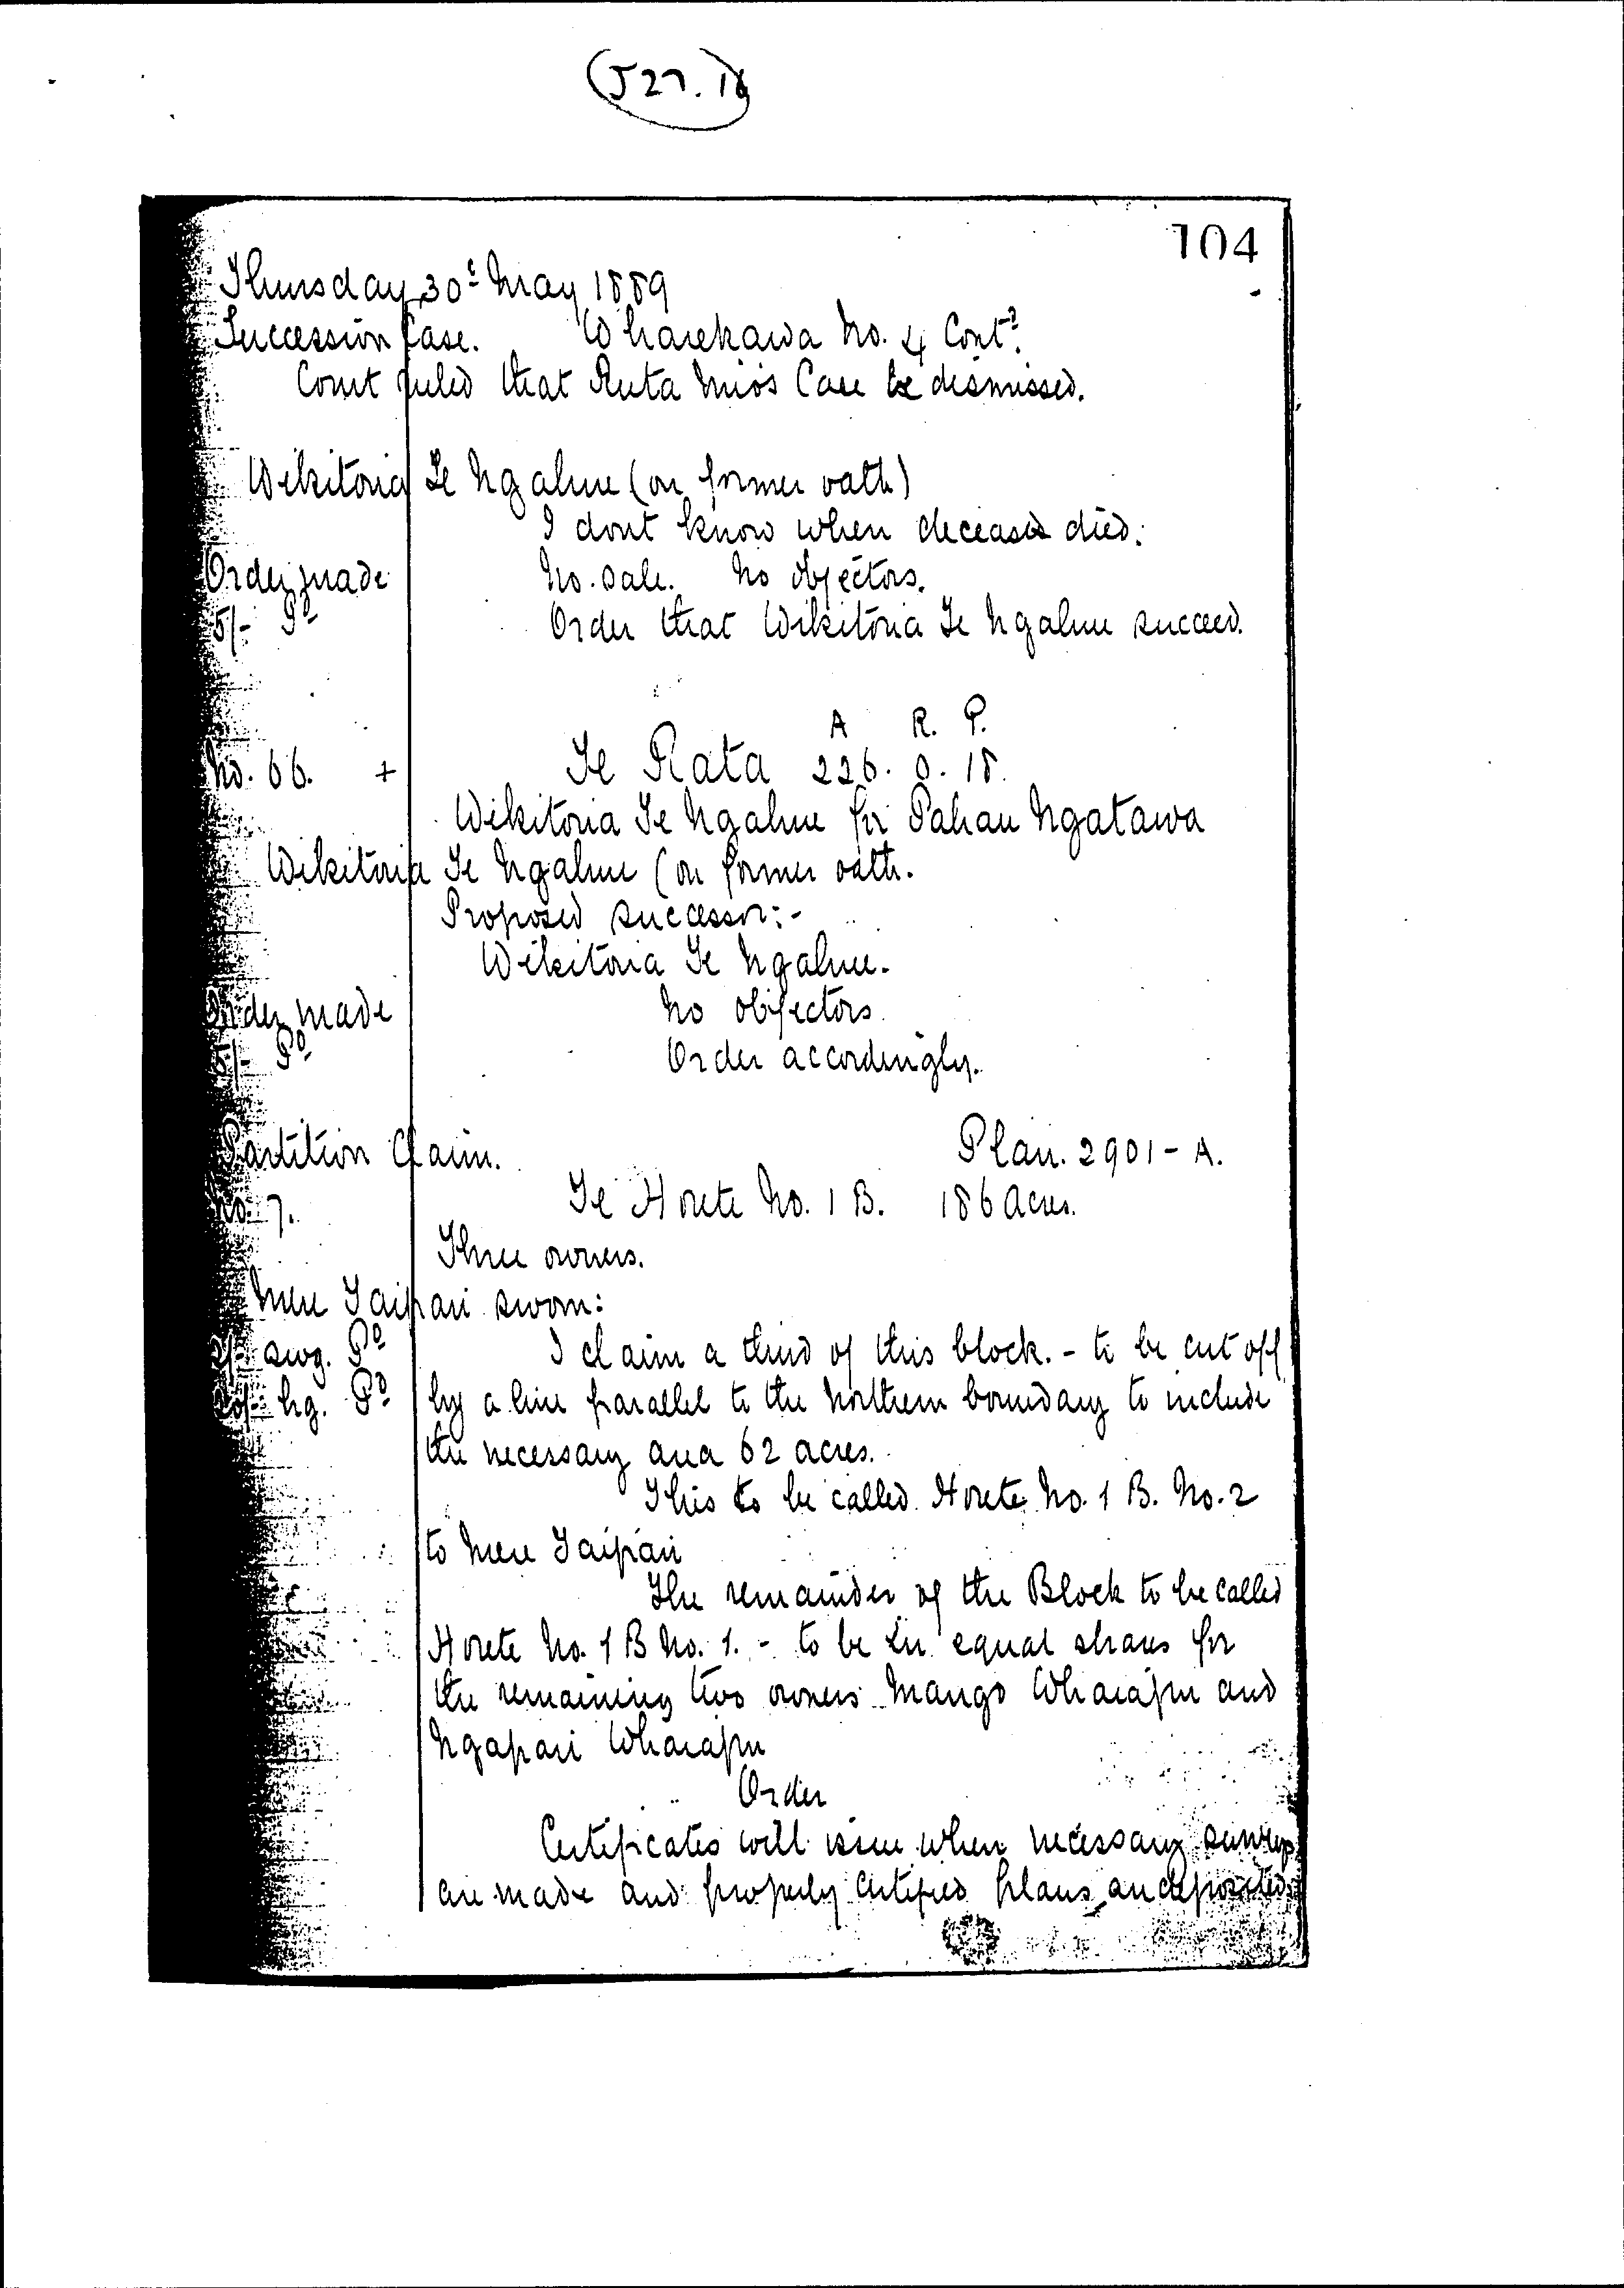 (J27.18)
104
Thursday 30th May 1889
Succession Case. Wharekawa No. 4 Contd.
Court ruled that Ruta Mio's Case be dismissed.
Wikitoria Te Ngahue (on former oath)
I dont know when deceased died.
Order made No sale. No objectors.
5/- Pd Order that Wikitoria Te Ngahue succeed.
A R. P.
No. 66. + Te Rata 226. 0. 18.
Wikitoria Te Ngahue for Pahau Ngatawa
Wikitoria Te Ngahue (on former oath.
Proposed successor:-
Wikitoria Te Ngahue.
Order made No objectors.
5/- Pd Order accordingly.
Partition Claim. Plan. 2901-A.
No. 7. Te Horete No. 1 B. 186 acres.
Three owners.
Mere Taipari sworn:
2/- swg. Pd I claim a third of this block. - to be cut off
20/- hg. Pd by a line parallel to the Northern boundary to include
the necessary area 62 acres.
This to be called Horete No. 1 B. No. 2
to Mere Taipari
The remainder of the Block to be called
Horete No. 1 B No. 1. - to be in equal shares for
the remaining two owners Mango Wharapu and
Ngapari Wharapu
Order
Certificates will issue when necessary surveys
are made and properly certified plans are deposited